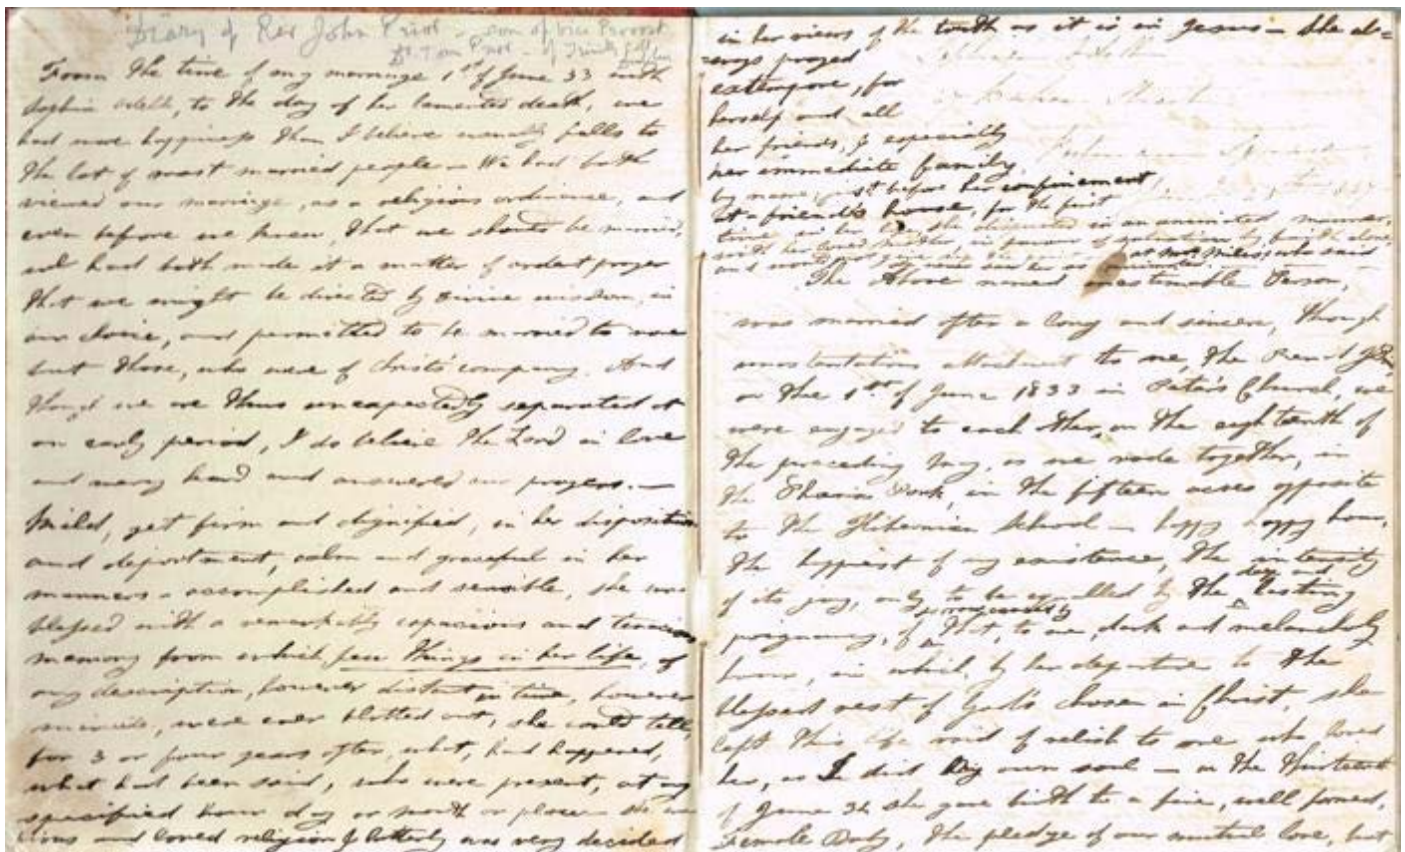 Diary of Rev John Prior - son of Vice Provost
Dr. Tom Prior - of Trinity Coll
From the time of my marriage 1st of June 33 with
Sophia to the day of her lamented death, we
had more happiness than I believe usually falls to
the lot of most married people - We had both
viewed our marriage, as a religious ordinance, and
even before we knew, that we should be married,
we had both made it a matter of ardent prayer
that we might be directed by divine wisdom, in
our choice, and permitted to be married to none
but those, who were of Christ's company. And
though we are thus unexpectedly separated at
an early period, I do believe the Lord in love
and mercy heard and answered our prayers. -
Mild, yet firm and dignified, in her disposition
and deportment, calm and graceful in her
manners - accomplished and sensible, she was
blessed with a remarkably capacious and tenacious
memory from which few things in her life, of
any description, however distant in time, however
minute, were ever blotted out, she could tell,
for 3 or four years after, what, had happened,
what had been said, who were present, at any
specified hour day or month or place - she was
pious and loved religion & latterly was very decided
in her views of the truth as it is in Jesus - She al=
ways prayed
extempore, for
herself and all
her friends, & especially
her immediate family
by name, just before her confinement,
at a friend's house, for the first
time in her life, she in an animated manner,
with her in favour of by faith alone,
and would not give up the point who said
The Above named inestimable Person,
was married after a long and sincere, though
unostentatious attachment to me, the Revd John
on the 1st of June 1833 in Peter's Church, we
were engaged to each other, on the eighteenth of
the preceding May, as we rode together, in
the Phoenix Park, in the fifteen acres opposite
to the Hibernian School - happy happy hour,
the happiest of my existence, the intensity
of its joy, only to be equalled by the deep and lasting
poignancy, of that, to me, dark and melancholy
hour, in which, by her departure to the
blessed rest of God's chosen in Christ, she
left this life void of relish to one who loved
her, as I did my own soul - on the thirteenth
of June 34 she gave birth to a fine, well formed,
Female Baby, the pledge of our mutual love, but